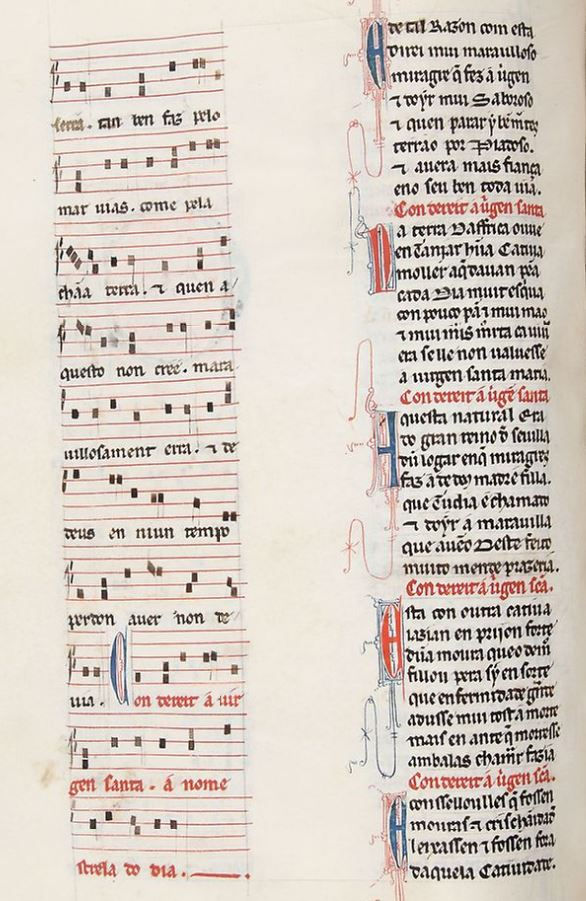 serra. tan ben faz pelo
mar uias. come pela
chãa terra. ⁊ quen a
questo non cree. mara
uillosament erra. ⁊ de
deus en niun tempo
perdon auer non de
uia. Con dereit á uir
gen santa. á nome
strela do dia.
de tal Razon com esta
direi mui marauilloso
miragre q̃ fez a uirgen
⁊ doyr mui Saboroso
⁊ quen parar y
terrao por Piadoso.
⁊ auera mais fiança
eno seu ben toda uia.
Con dereit a uirgen santa
a terra Daffrica ouue
en Tanjar hũa Catiua
moller
cada Dia mui esquiua
con pouco pã ⁊ mui mao
⁊ mui
era se lle non ualuesse
a uirgen santa maria.
Con dereit á uirgẽ santa
questa natural era
do gran reino d̃ seuilla
dũ logar enq̃ miragres
faz a de d̃s madre ⁊ filla.
que Tudia é chamado
⁊ doyr a marauilla
que auẽo Deste feito
muito mente prazeria.
Con dereit á uirgen sc̃a.
sta con outra catiua
iazian en prijon forte
dũa moura que
fillou pera sy en sorte
que enfermidade
adusse mui tost a morte
mais en ante q̃ morresse
ambalas chamar fazia
Con dereit á uirgen sc̃a.
conssellou lles q̃ fossen
mouras ⁊
leixassen ⁊ fossen fora
daquela Catiuidade.